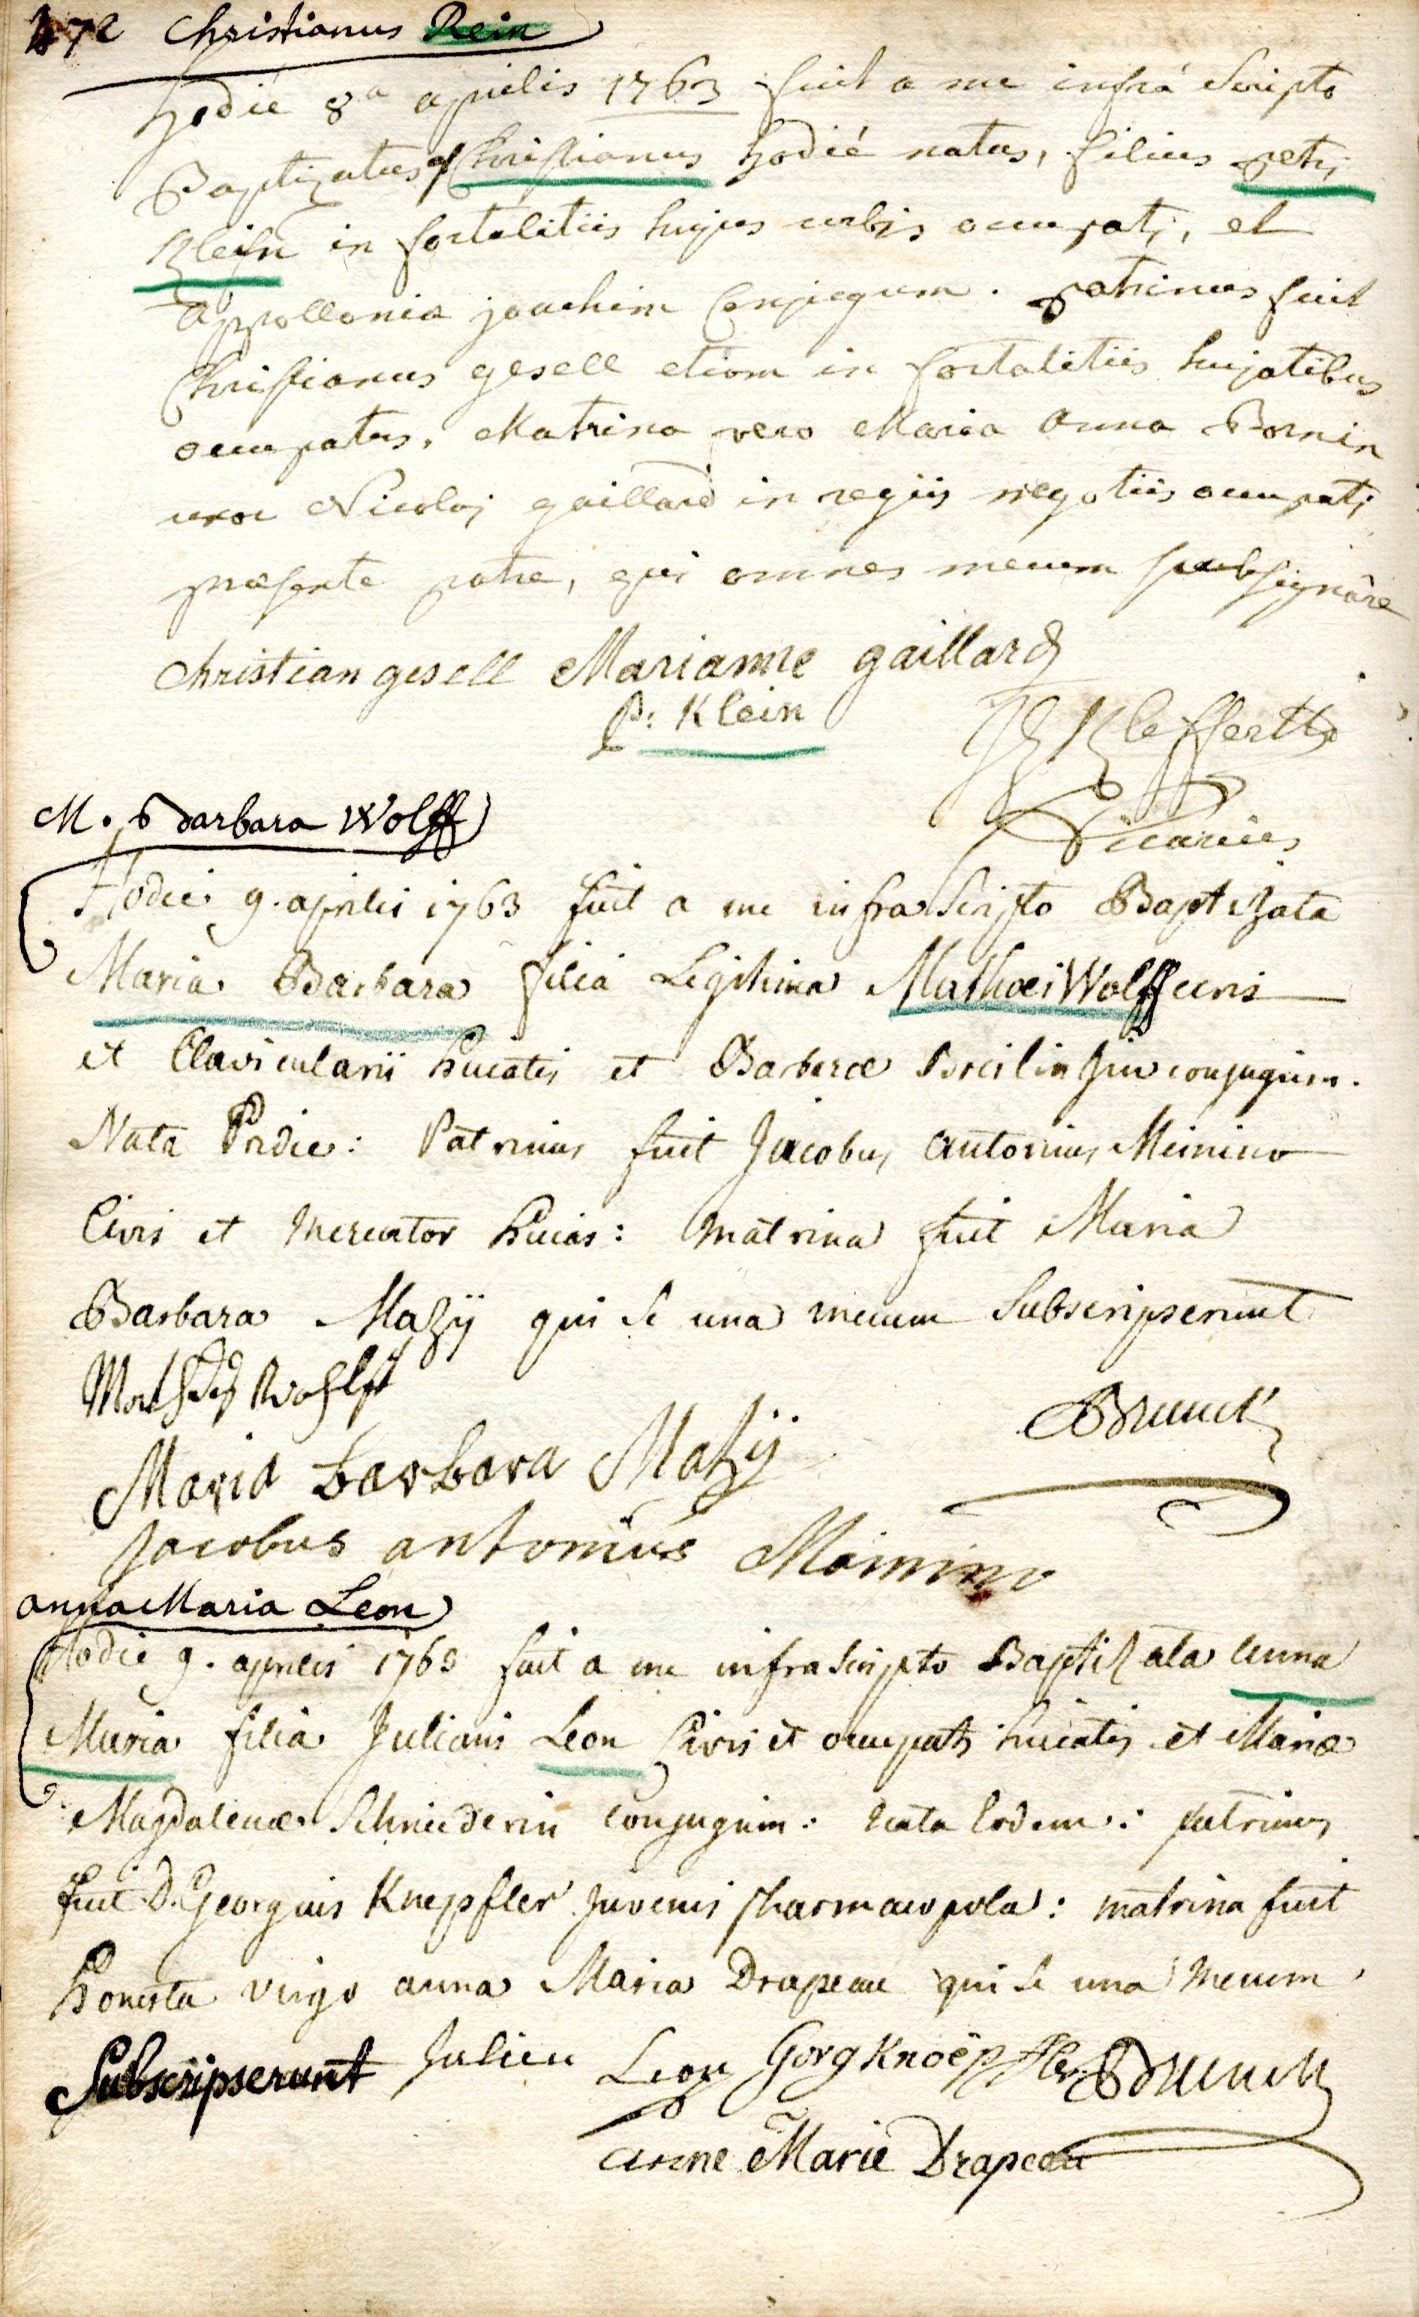 472 Christianus Rein
hodie 8a aprilis 1763 fuit a me infrá Scripto
Baptizatus Christianus hodié natus, filius petri
Klein in fortalitiis hujus urbis occupati, et
appollonia joachim Conjugum. patrinus fuit
Christianus gesell etiam in fortalitiis hujatibus
occupatus, Matrina vero Maria anna Bornin
uxor Nicolaj gaillard in regiis negotiis occupati
præsente patre, qui omnes mecum subsignâre
Christian gesell Marianne gaillard
P: Klein
Kleffertz
Vicarius
M. Barbara Wolff
Hodie 9. aprilis 1763 fuit a me infra Scripto Baptizata
Maria Barbara filia Legitima Mathæi Wolff civis
et Clavicularii huiatis et Barbaræ conjugum.
Nata Pridie: Patrinus fuit Jacobus antonius Meinino
Civis et Mercator huias: Matrina fuit Maria
Barbara Mazÿ qui se una mecum Subscripserunt
Maria barbara Mazÿ
Brunck
Jacobus antonius Mainino
anna Maria Leon
Hodie 9. aprilis 1763 fuit a me infra Scripto Baptizata Anna
Maria filia Juliani Leon Civis et occupati huiatis et Mariæ
Magdalenæ Schneiderin conjugum: Nata Eodem: patrinus
fuit D. Georgius Knepffler Juvenis pharmacopola: matrina fuit
Honesta virgo anna Maria Drapeau qui se una mecum
Subscripserunt Julien Leon Gorg Knoëpffler Brunck
anne Marie Drapeau